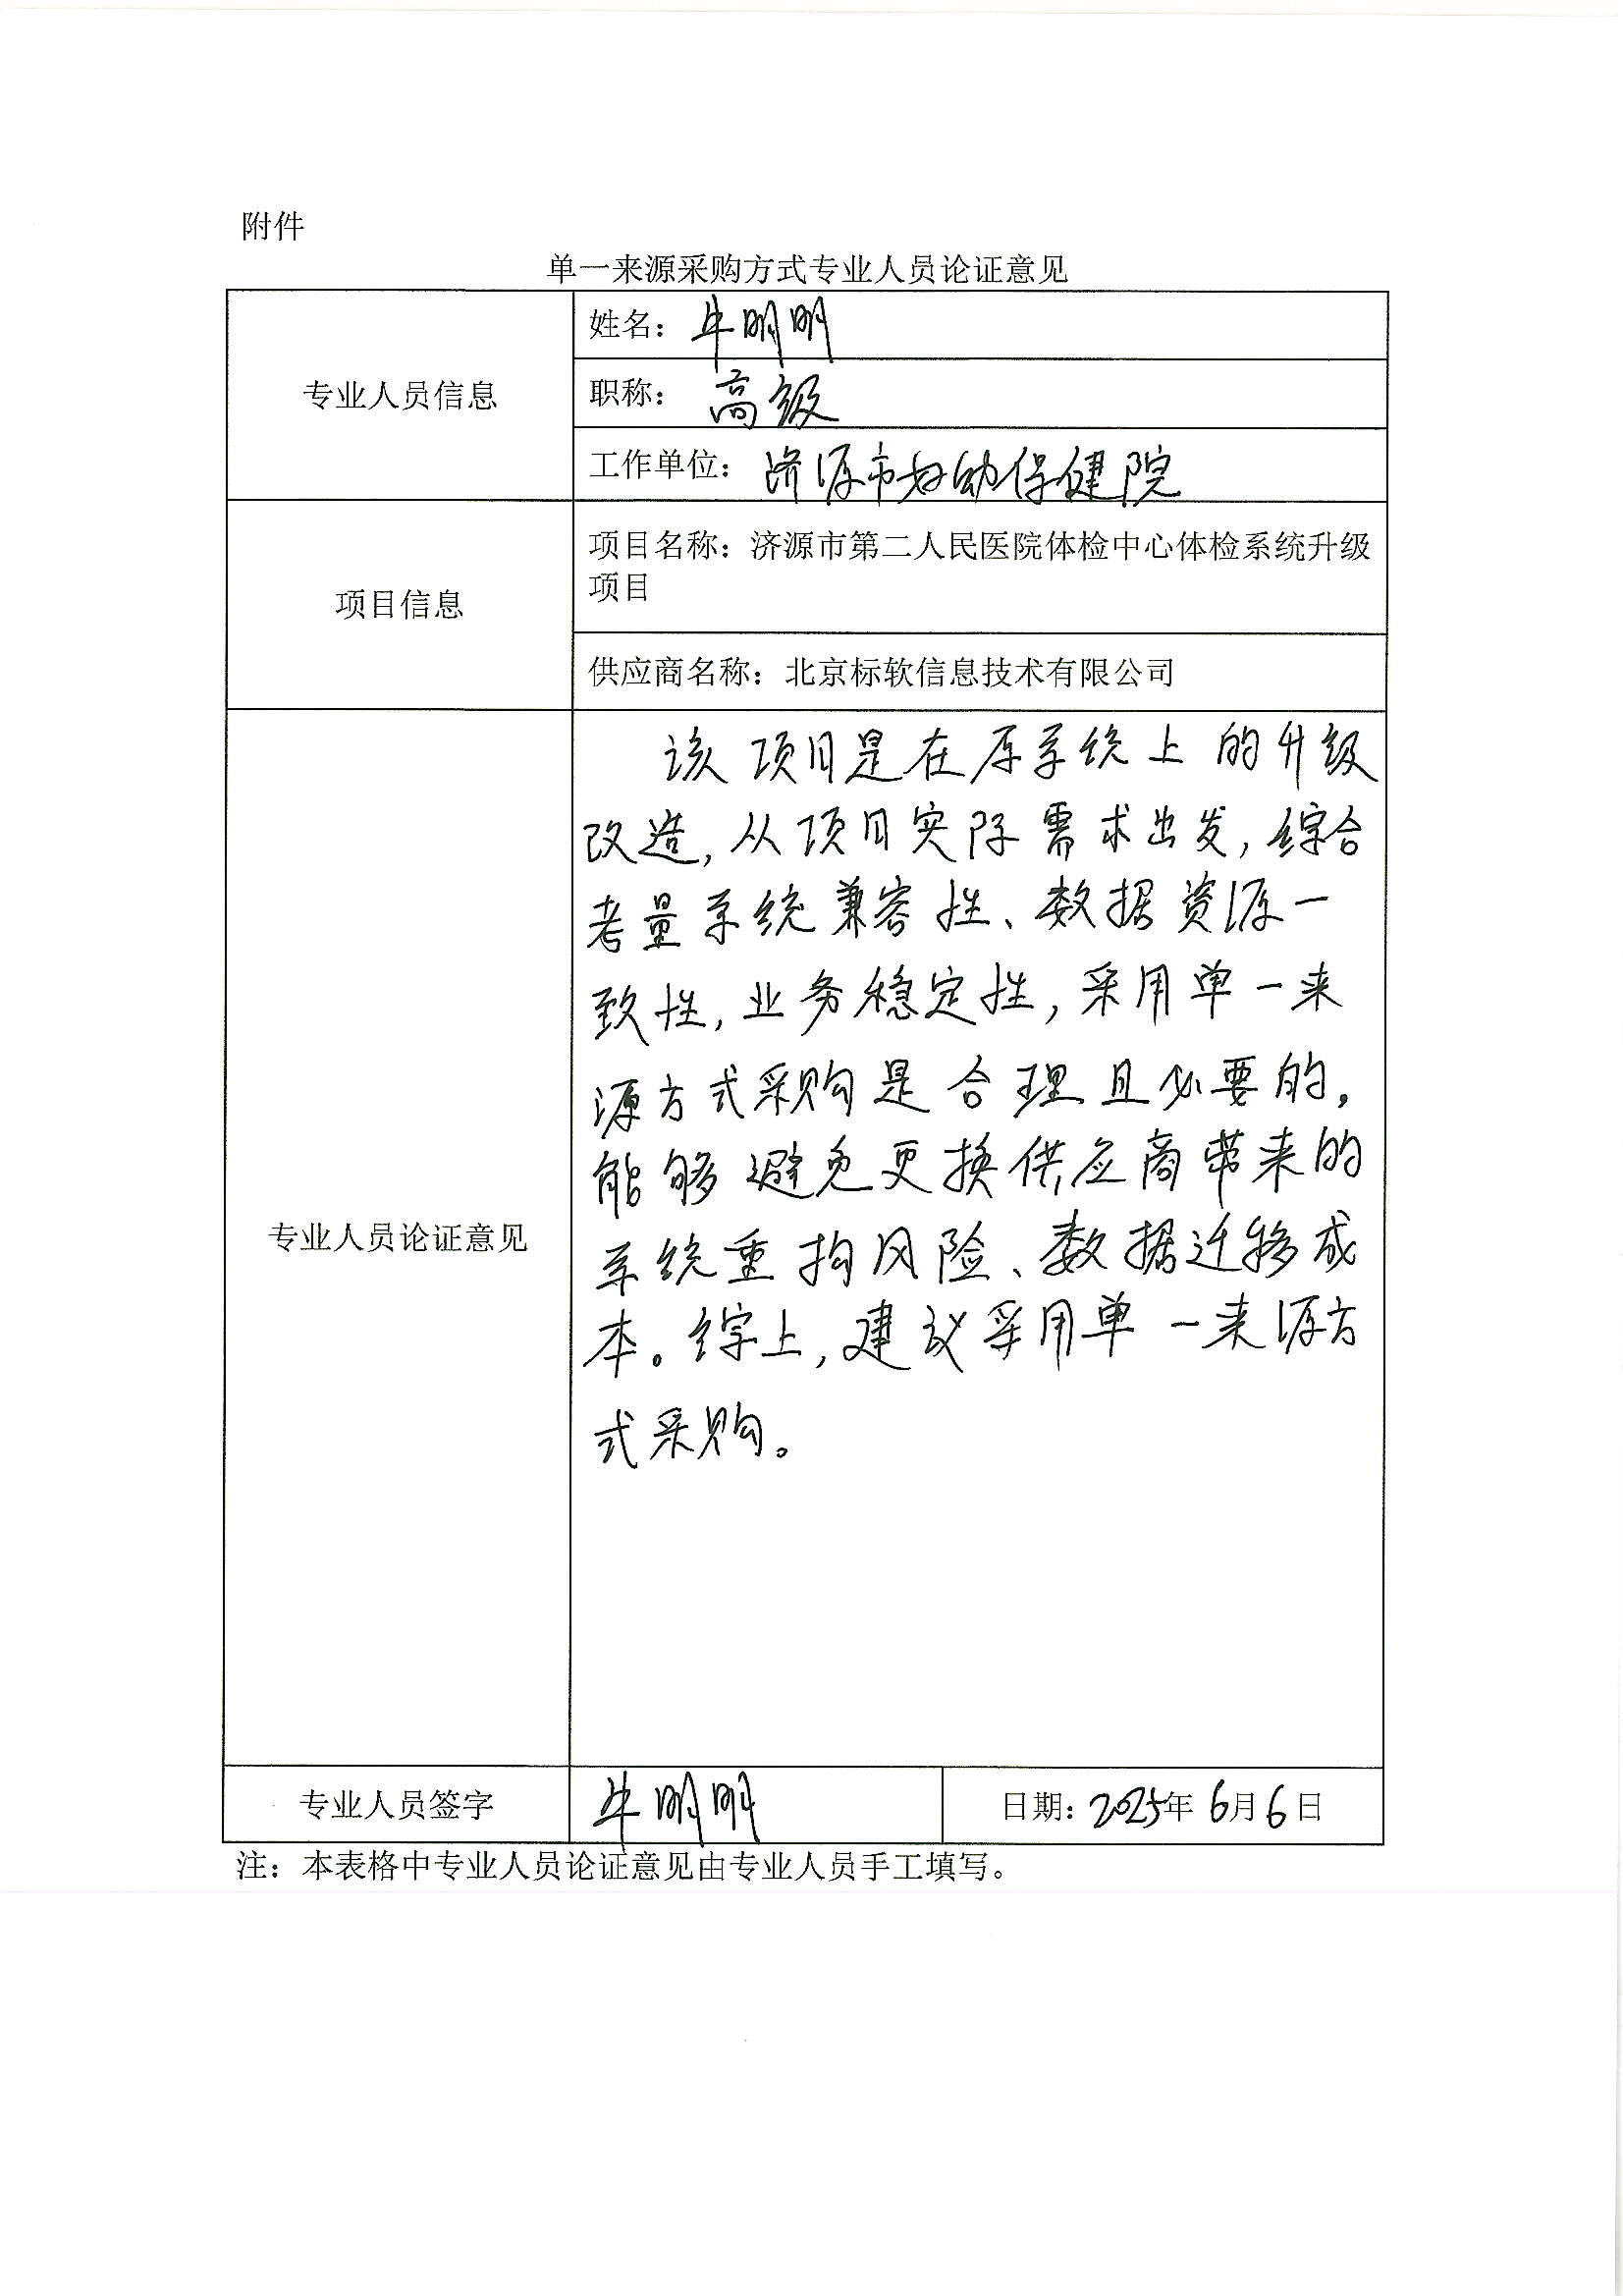 附件
单一来源采购方式专业人员论证意见
专业人员信息
姓名：牛明明
职称：高级
工作单位：济源市妇幼保健院
项目信息
项目名称：济源市第二人民医院体检中心体检系统升级
项目
供应商名称：北京标软信息技术有限公司
专业人员论证意见
该项目是在原系统上的升级
改造，从项目实际需求出发，综合
考量系统兼容性、数据资源一
致性，业务稳定性，采用单一来
源方式采购是合理且必要的，
能够避免更换供应商带来的
系统重构风险、数据迁移成
本。综上，建议采用单一来源方
式采购。
专业人员签字
牛明明
日期：2025年6月6日
注：本表格中专业人员论证意见由专业人员手工填写。